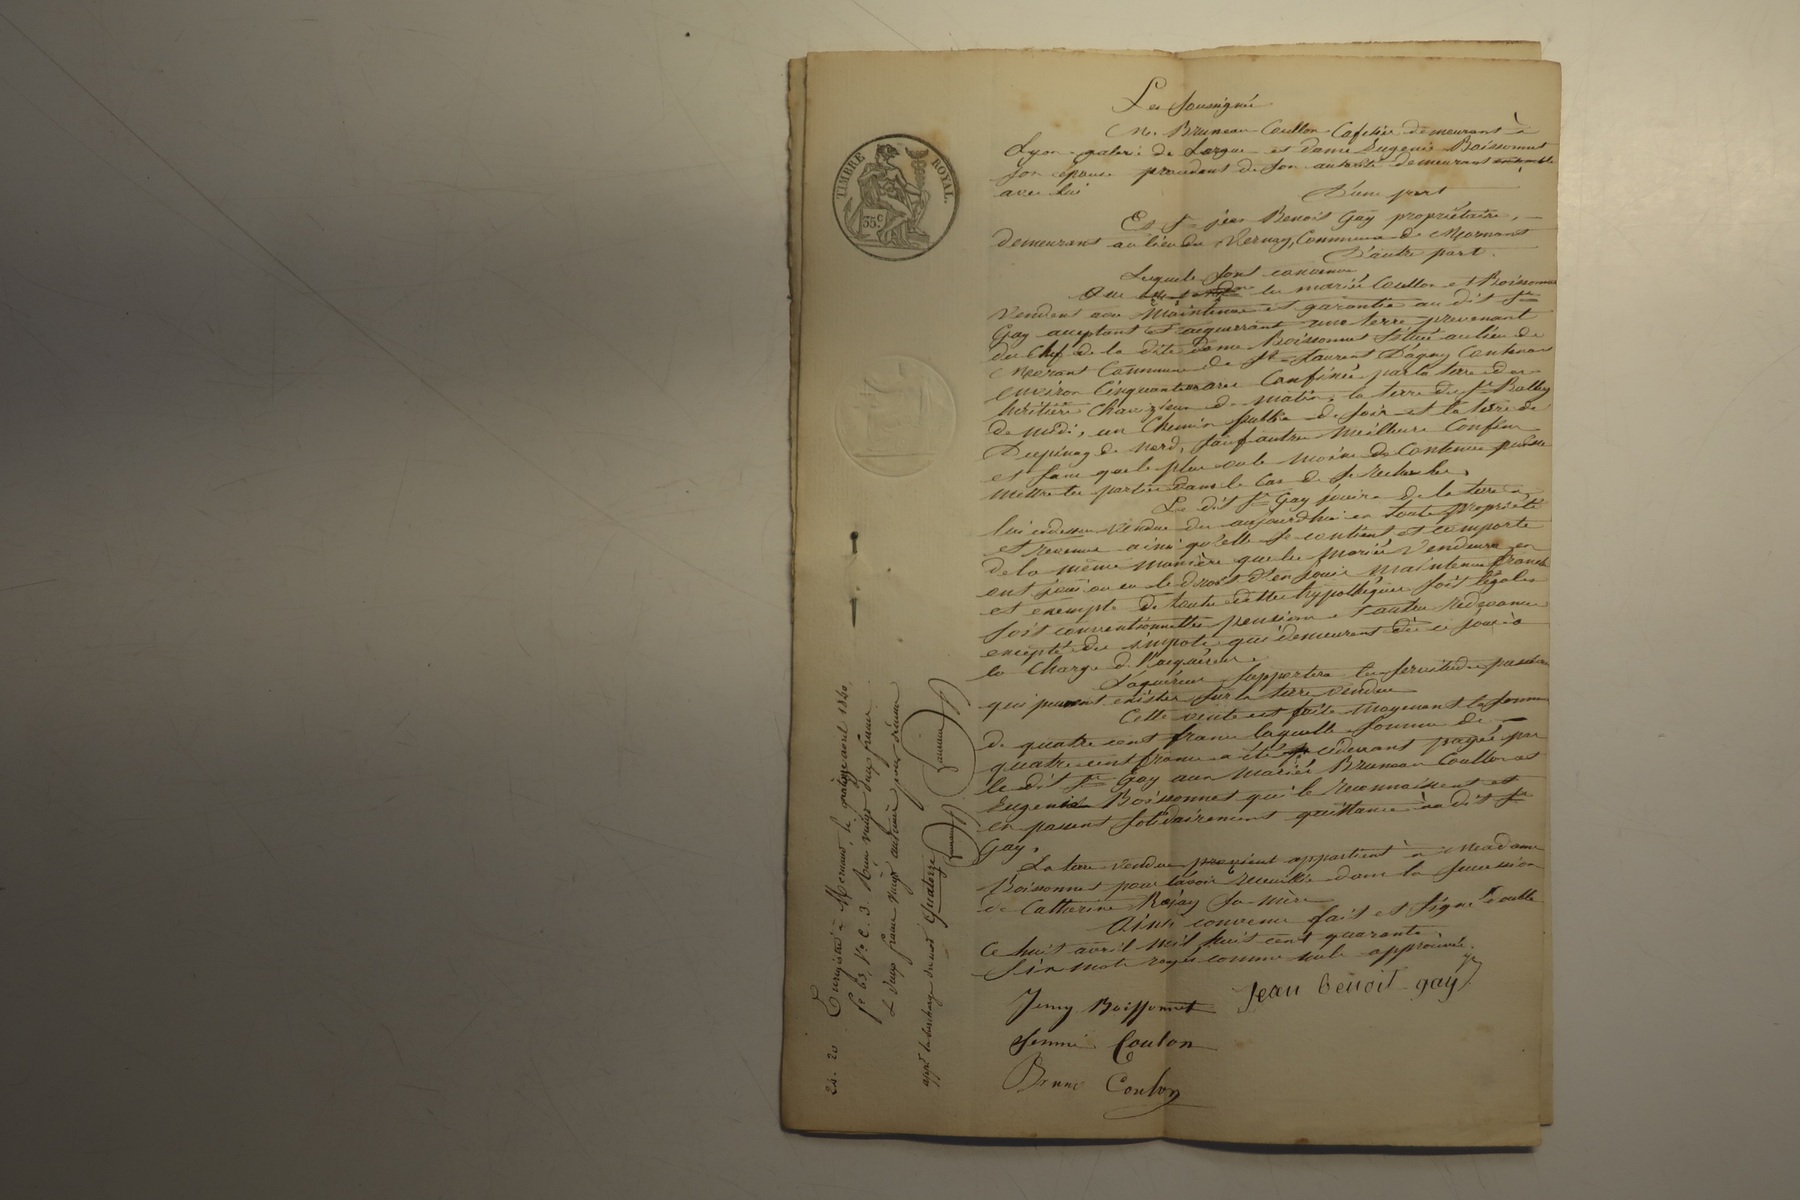 Les Soussignés
M. Bruneau Coullon Cafetier demeurant à
Lyon galerie de Largue et dame Eugenie Boissonnet
son épouse procedant de son autorité demeurant ensemble
avec lui
D'une part
Et Sr jean Benoit Gay propriétaire,
demeurant au lieu du Vernay, Commune de Mornant
D'autre part.
Lesquels sont convenu
Que les mariés Coullon et Boissonnet
Vendent avec Maintenue et garantie au dit Sr
Gay acceptant et acquerrant une terre provenant
du Chef de la dite Dame Boissonnet située au lieu de
Commune de St Laurent D'agny Contenant
environ Cinquante ares Confinée par la terre des
héritiers de matin, la terre du Sr
de midi, un Chemin public de soir et la terre de
de nord, sauf autres meilleurs Confins
et sans que le plus ou le moins de Contenue puisse
mettre les parties dans le Cas de se rechercher.
Le dit Sr Gay jouira de la terre à
lui cidessus vendue dès aujourdhui en toute propriété
et revenus ainsi qu'elle se contient et comporte
de la même manière que les mariés Vendeurs en
ont joui ou eu le droit d'en jouir Maintenue franche
et exempte de toutes dettes hypothèques soit légales
soit conventionnelles pensions et autres redevances
excepté des impots qui demeurent dès ce jour à
la Charge de l'acquéreur.
L'aquéreur supportera les servitudes passives
qui peuvent exister sur la terre vendue
Cette vente est faite Moyenant la somme
de quatre cent francs laquelle somme de
quatre cent francs a été cidevant payée par
le dit Sr Gay aux mariés Bruneau Coullon et
Eugenie Boissonnet qui le reconnaissent et
en passent solidairement quittance au dit Sr
Gay.
La terre vendue provient appartient à Madame
Boissonnet pour l'avoir recueillie dans la succession
de Catherine sa mère
Ainsi convenu fait et signé double
Ce huit avril mil huit cent quarante
Six mots rayés comme nuls approuvés.
Jenny Boissonnet
jean benoit gay
femme Coulon
Bruno Coulon
TIMBRE ROYAL.
35 c.
Enregistré à Mornant le avril 1840,
fo 63, Vo C. 3. Reçu vingt deux francs
et deux francs vingt centimes pour décime
appr. la surcharge du mot Quatorze
24. 20